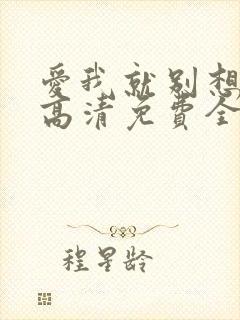 愛我就别想
高清免費全
程星龄